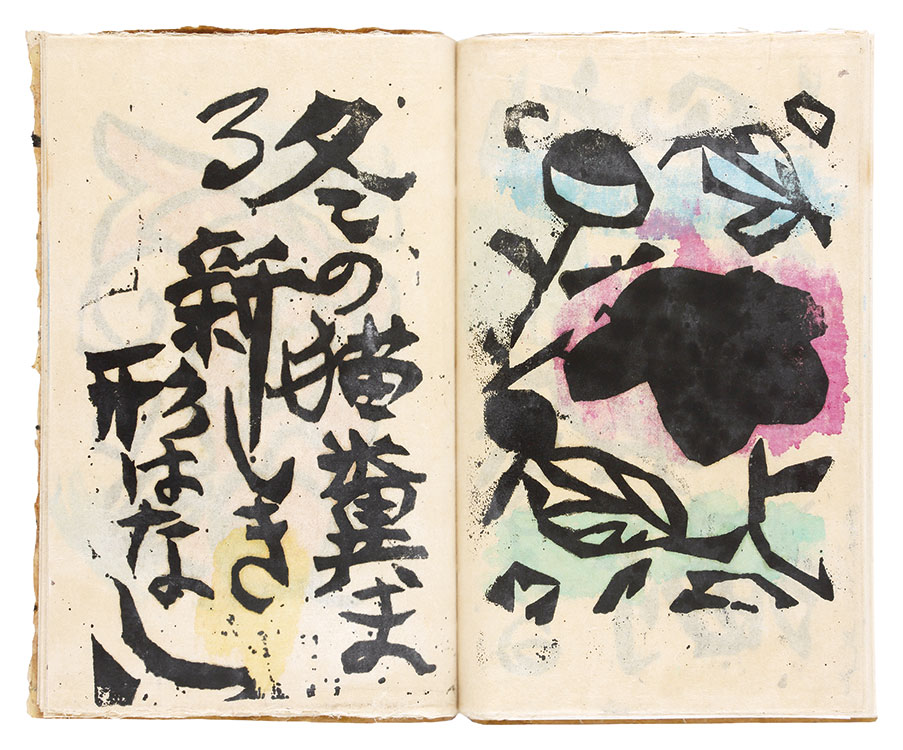 冬の猫糞ま
る新しき
形はなし